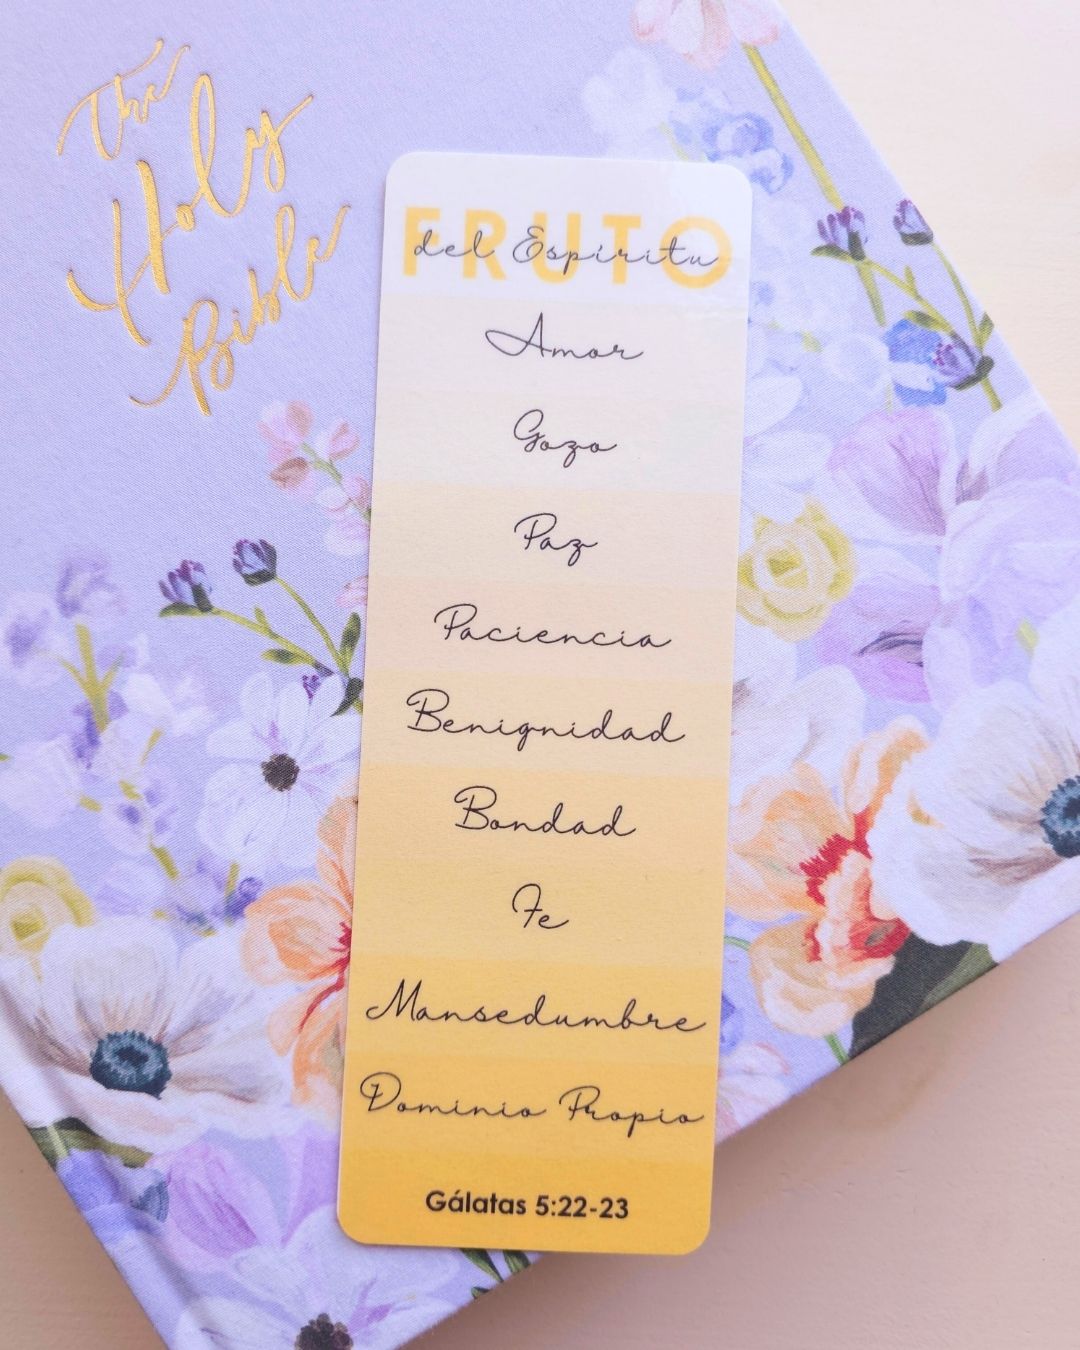 The
Holy
Bible
FRUTO
del Espíritu
Amor
Gozo
Paz
Paciencia
Benignidad
Bondad
Fe
Mansedumbre
Dominio Propio
Gálatas 5:22-23